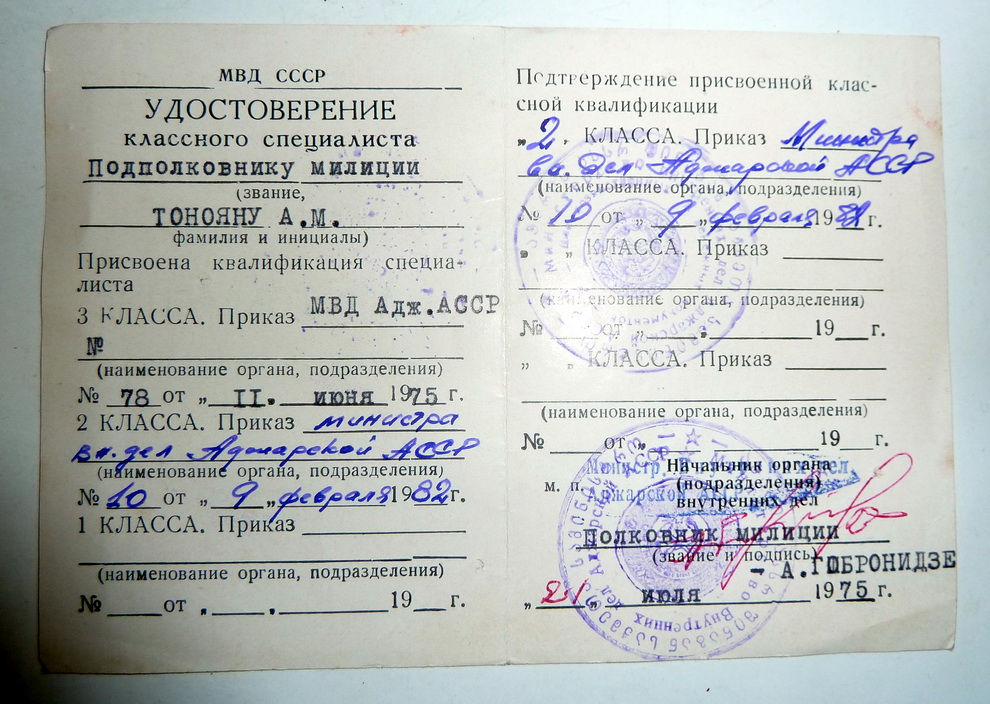 МВД СССР
УДОСТОВЕРЕНИЕ
классного специалиста
Подполковнику милиции
(звание,
ТОНОЯНУ А.М.
фамилия и инициалы)
Присвоена квалификация специа-
листа
3 КЛАССА. Приказ МВД Адж.АССР
№
(наименование органа, подразделения)
№ 78 от „ II. июня 1975 г.
2 КЛАССА. Приказ министра
вн. дел Аджарской АССР
(наименование органа, подразделения)
№ 10 от „ 9 „ февраля 1982 г.
1 КЛАССА. Приказ
(наименование органа, подразделения)
№ от „ „ 19 г.
Подтверждение присвоенной клас-
сной квалификации
„2„ КЛАССА. Приказ Министра
вн. дел Аджарской АССР
(наименование органа, подразделения)
№ 10 от „ 9 „ февраля 19 г.
„ „ КЛАССА. Приказ
(наименование органа, подразделения)
№ от „ „ 19 г.
„ „ КЛАССА. Приказ
(наименование органа, подразделения)
№ от „ 19 г.
Министр Внутренних дел
Аджарской АССР
Начальник органа
м. п. (подразделения)
внутренних дел
Полковник милиции
(звание и подпись)
- А.ГОБРОНИДЗЕ
„21„ июля 1975 г.